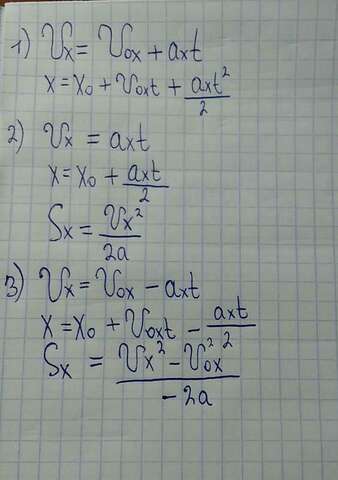 1) Vx = V0x + axt
x = x0 + V0xt + axt²/2
2) Vx = axt
x = x0 + axt/2
Sx = Vx²/2a
3) Vx = V0x - axt
x = x0 + V0xt - axt²/2
Sx = Vx² - V0x²/-2a